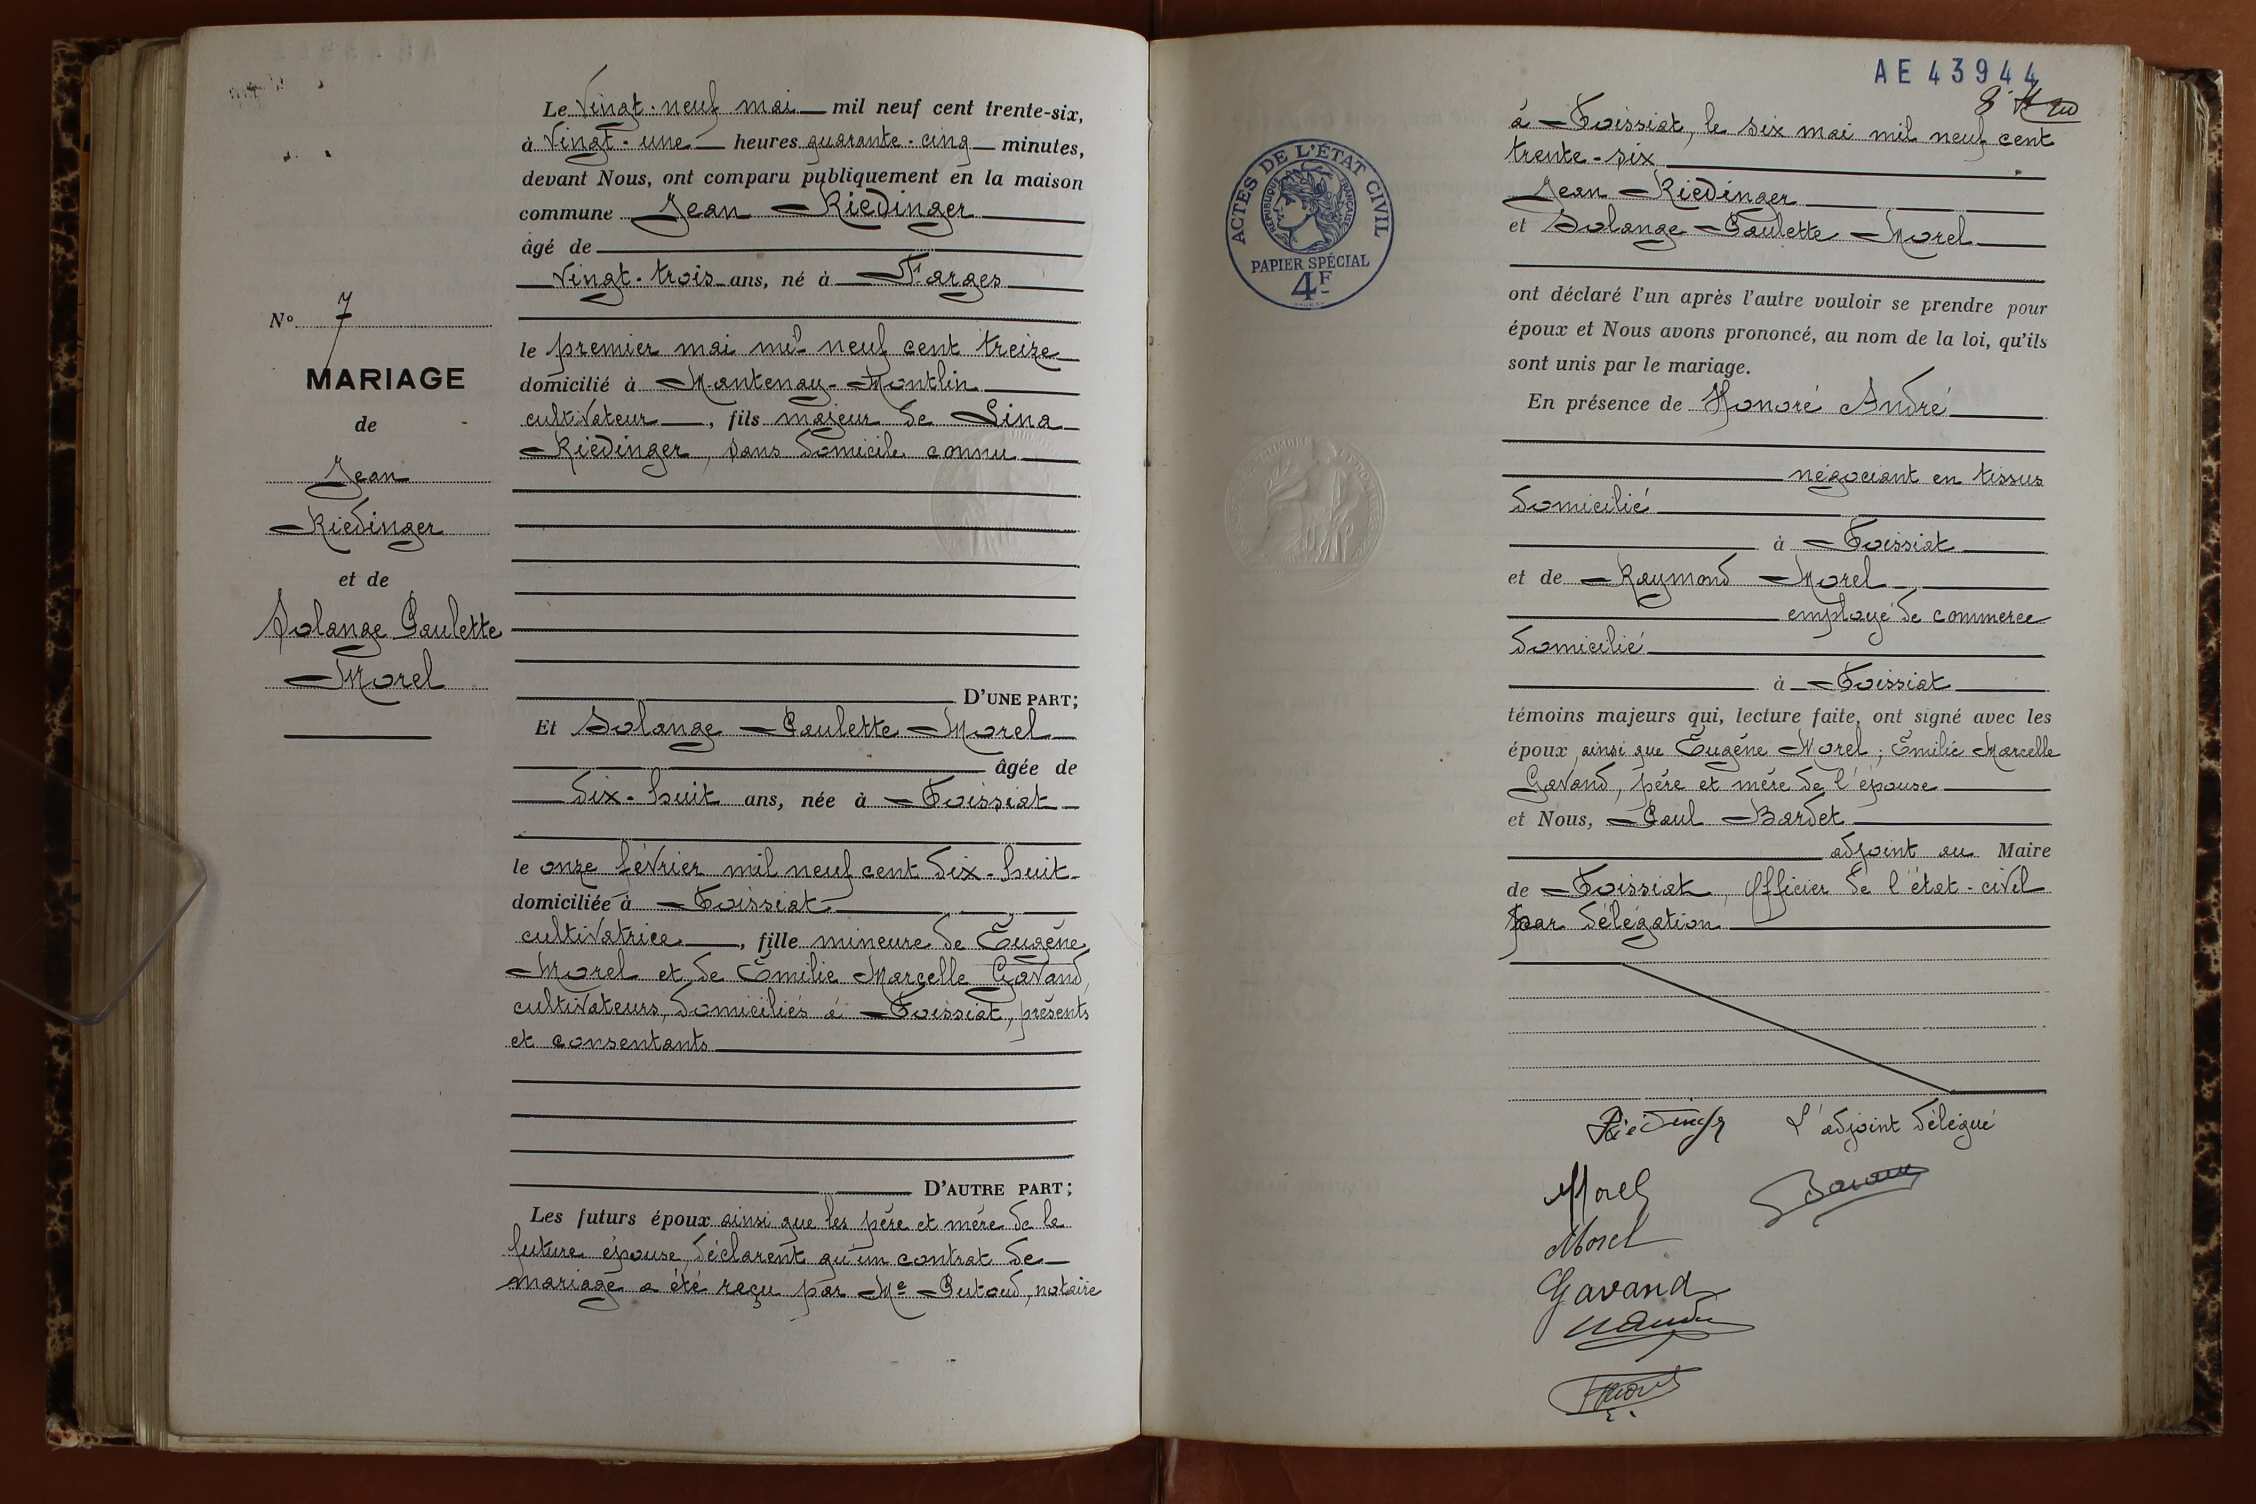 Le Vingt-neuf mai mil neuf cent trente-six,
à Vingt-une heures quarante-cinq minutes,
devant Nous, ont comparu publiquement en la maison
commune Jean Riedinger
âgé de
vingt-trois ans, né à Farges
le premier mai mil neuf cent treize
domicilié à Mantenay-Montlin
cultivateur, fils majeur de Lina
Riedinger, sans domicile connu
D'UNE PART;
Et Solange Paulette Morel
âgée de
dix-huit ans, née à Foissiat
le onze février mil neuf cent dix-huit
domiciliée à Foissiat
cultivatrice, fille mineure de Eugène
Morel et de Emilie Marcelle Gavand,
cultivateurs, domiciliés à Foissiat, présents
et consentants
D'AUTRE PART;
Les futurs époux ainsi que les père et mère de la
future épouse, déclarent qu'un contrat de
mariage a été reçu par Me notaire
N° 7
MARIAGE
de
Jean
Riedinger
et de
Solange Paulette
Morel
AE 43944
à Foissiat, le six mai mil neuf cent
trente-six
Jean Riedinger
et Solange Paulette Morel
ont déclaré l'un après l'autre vouloir se prendre pour
époux et Nous avons prononcé, au nom de la loi, qu'ils
sont unis par le mariage.
En présence de Honoré André
négociant en tissus
domicilié
à Foissiat
et de Raymond Morel,
employé de commerce
domicilié
à Foissiat
témoins majeurs qui, lecture faite, ont signé avec les
époux ainsi que Eugène Morel; Emilie Marcelle
Gavand, père et mère de l'épouse
et Nous, Paul Bardet
adjoint au Maire
de Foissiat, Officier de l'état-civil
par délégation
Riedinger
L'adjoint délégué
Morel
Morel
Gavand
ACTES DE L'ÉTAT CIVIL
RÉPUBLIQUE FRANÇAISE
PAPIER SPÉCIAL
4F